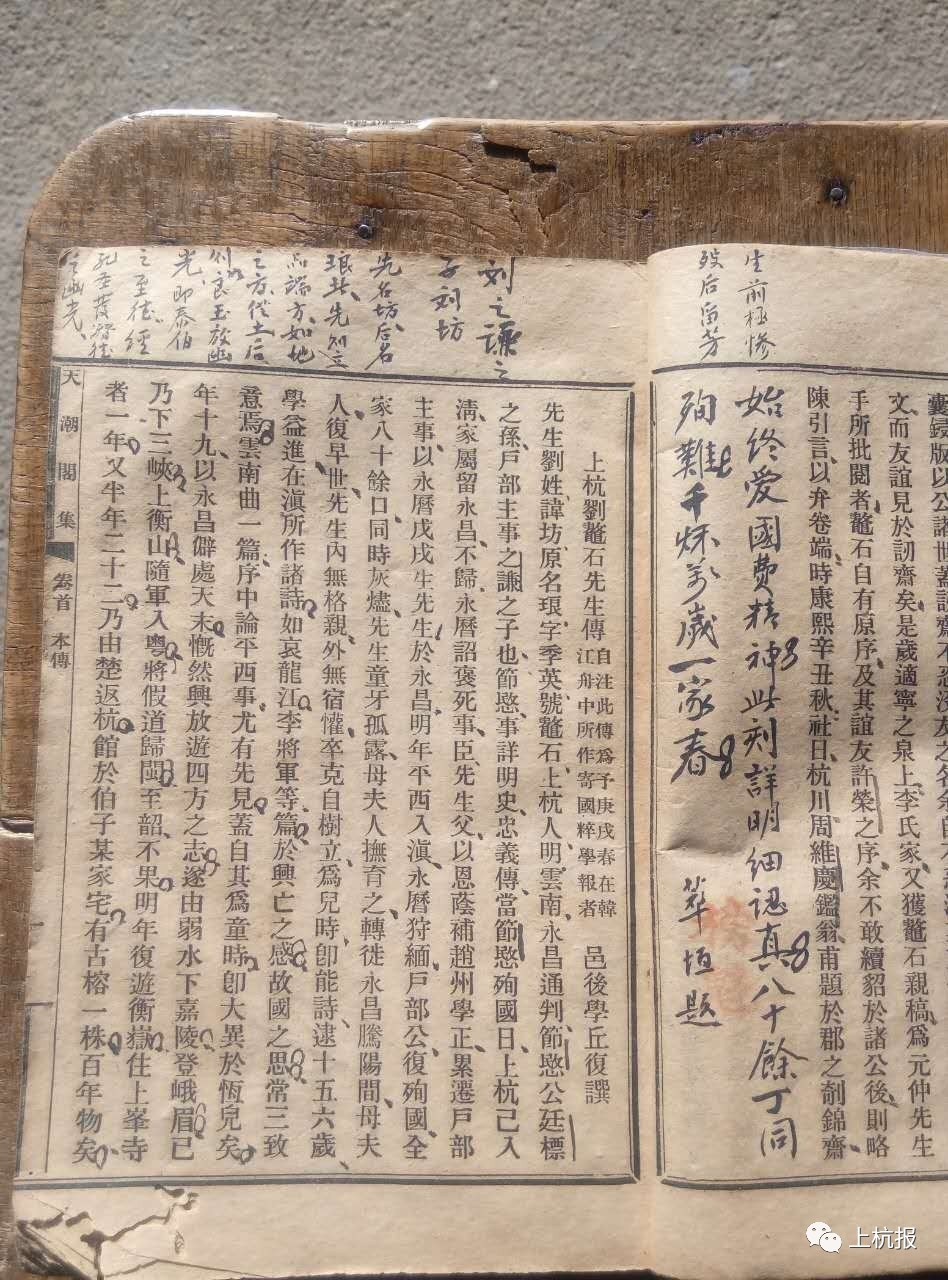 囊鋟版以公諸世蓋
文而友誼見於訒齋矣是歲適寧之泉上李氏家又獲鼇石親稿爲元仲先生
手所批閱者鼇石自有原序及其誼友許榮之序余不敢續貂於諸公後則略
陳引言以弁卷端時康熙辛丑秋社日杭川周維慶鑑翁甫題於郡之剞錦齋
生前極慘
殁后留芳
始終愛國費精神此刻詳明細認真八十餘丁同
殉難千秌萬歲一家春
華垣題
上杭劉鼇石先生傳 自注此傳爲予庚戌春在韓
江舟中所作寄國粹學報者 邑後學丘復譔
先生劉姓諱坊原名琅字季英號鼇石上杭人明雲南永昌通判節愍公廷標
之孫戶部主事之謙之子也節愍事詳明史忠義傳當節愍殉國日上杭已入
淸家屬留永昌不歸永曆詔褒死事臣先生父以恩蔭補趙州學正累遷戶部
主事以永曆戊戌生先生於永昌明年平西入滇永曆狩緬戶部公復殉國全
家八十餘口同時灰燼先生童牙孤露母夫人撫育之轉徙永昌騰陽間母夫
人復早世先生內無格親外無宿懽卒克自樹立爲兒時卽能詩逮十五六歲
學益進在滇所作諸詩如哀龍江李將軍等篇於興亡之感故國之思常三致
意焉雲南曲一篇序中論平西事尤有先見蓋自其爲童時卽大異於恆兒矣
年十九以永昌僻處天末慨然興放遊四方之志遂由弱水下嘉陵登峨眉已
乃下三峽上衡山隨軍入粵將假道歸閩至韶不果明年復遊衡嶽住上峯寺
者一年又半年二十二乃由楚返杭館於伯子某家宅有古榕一株百年物矣
刘之謙之
子刘坊
先名坊后名
琅
之至德經
光即泰伯
之幽光
天潮閣集
卷首 本傳
上杭报